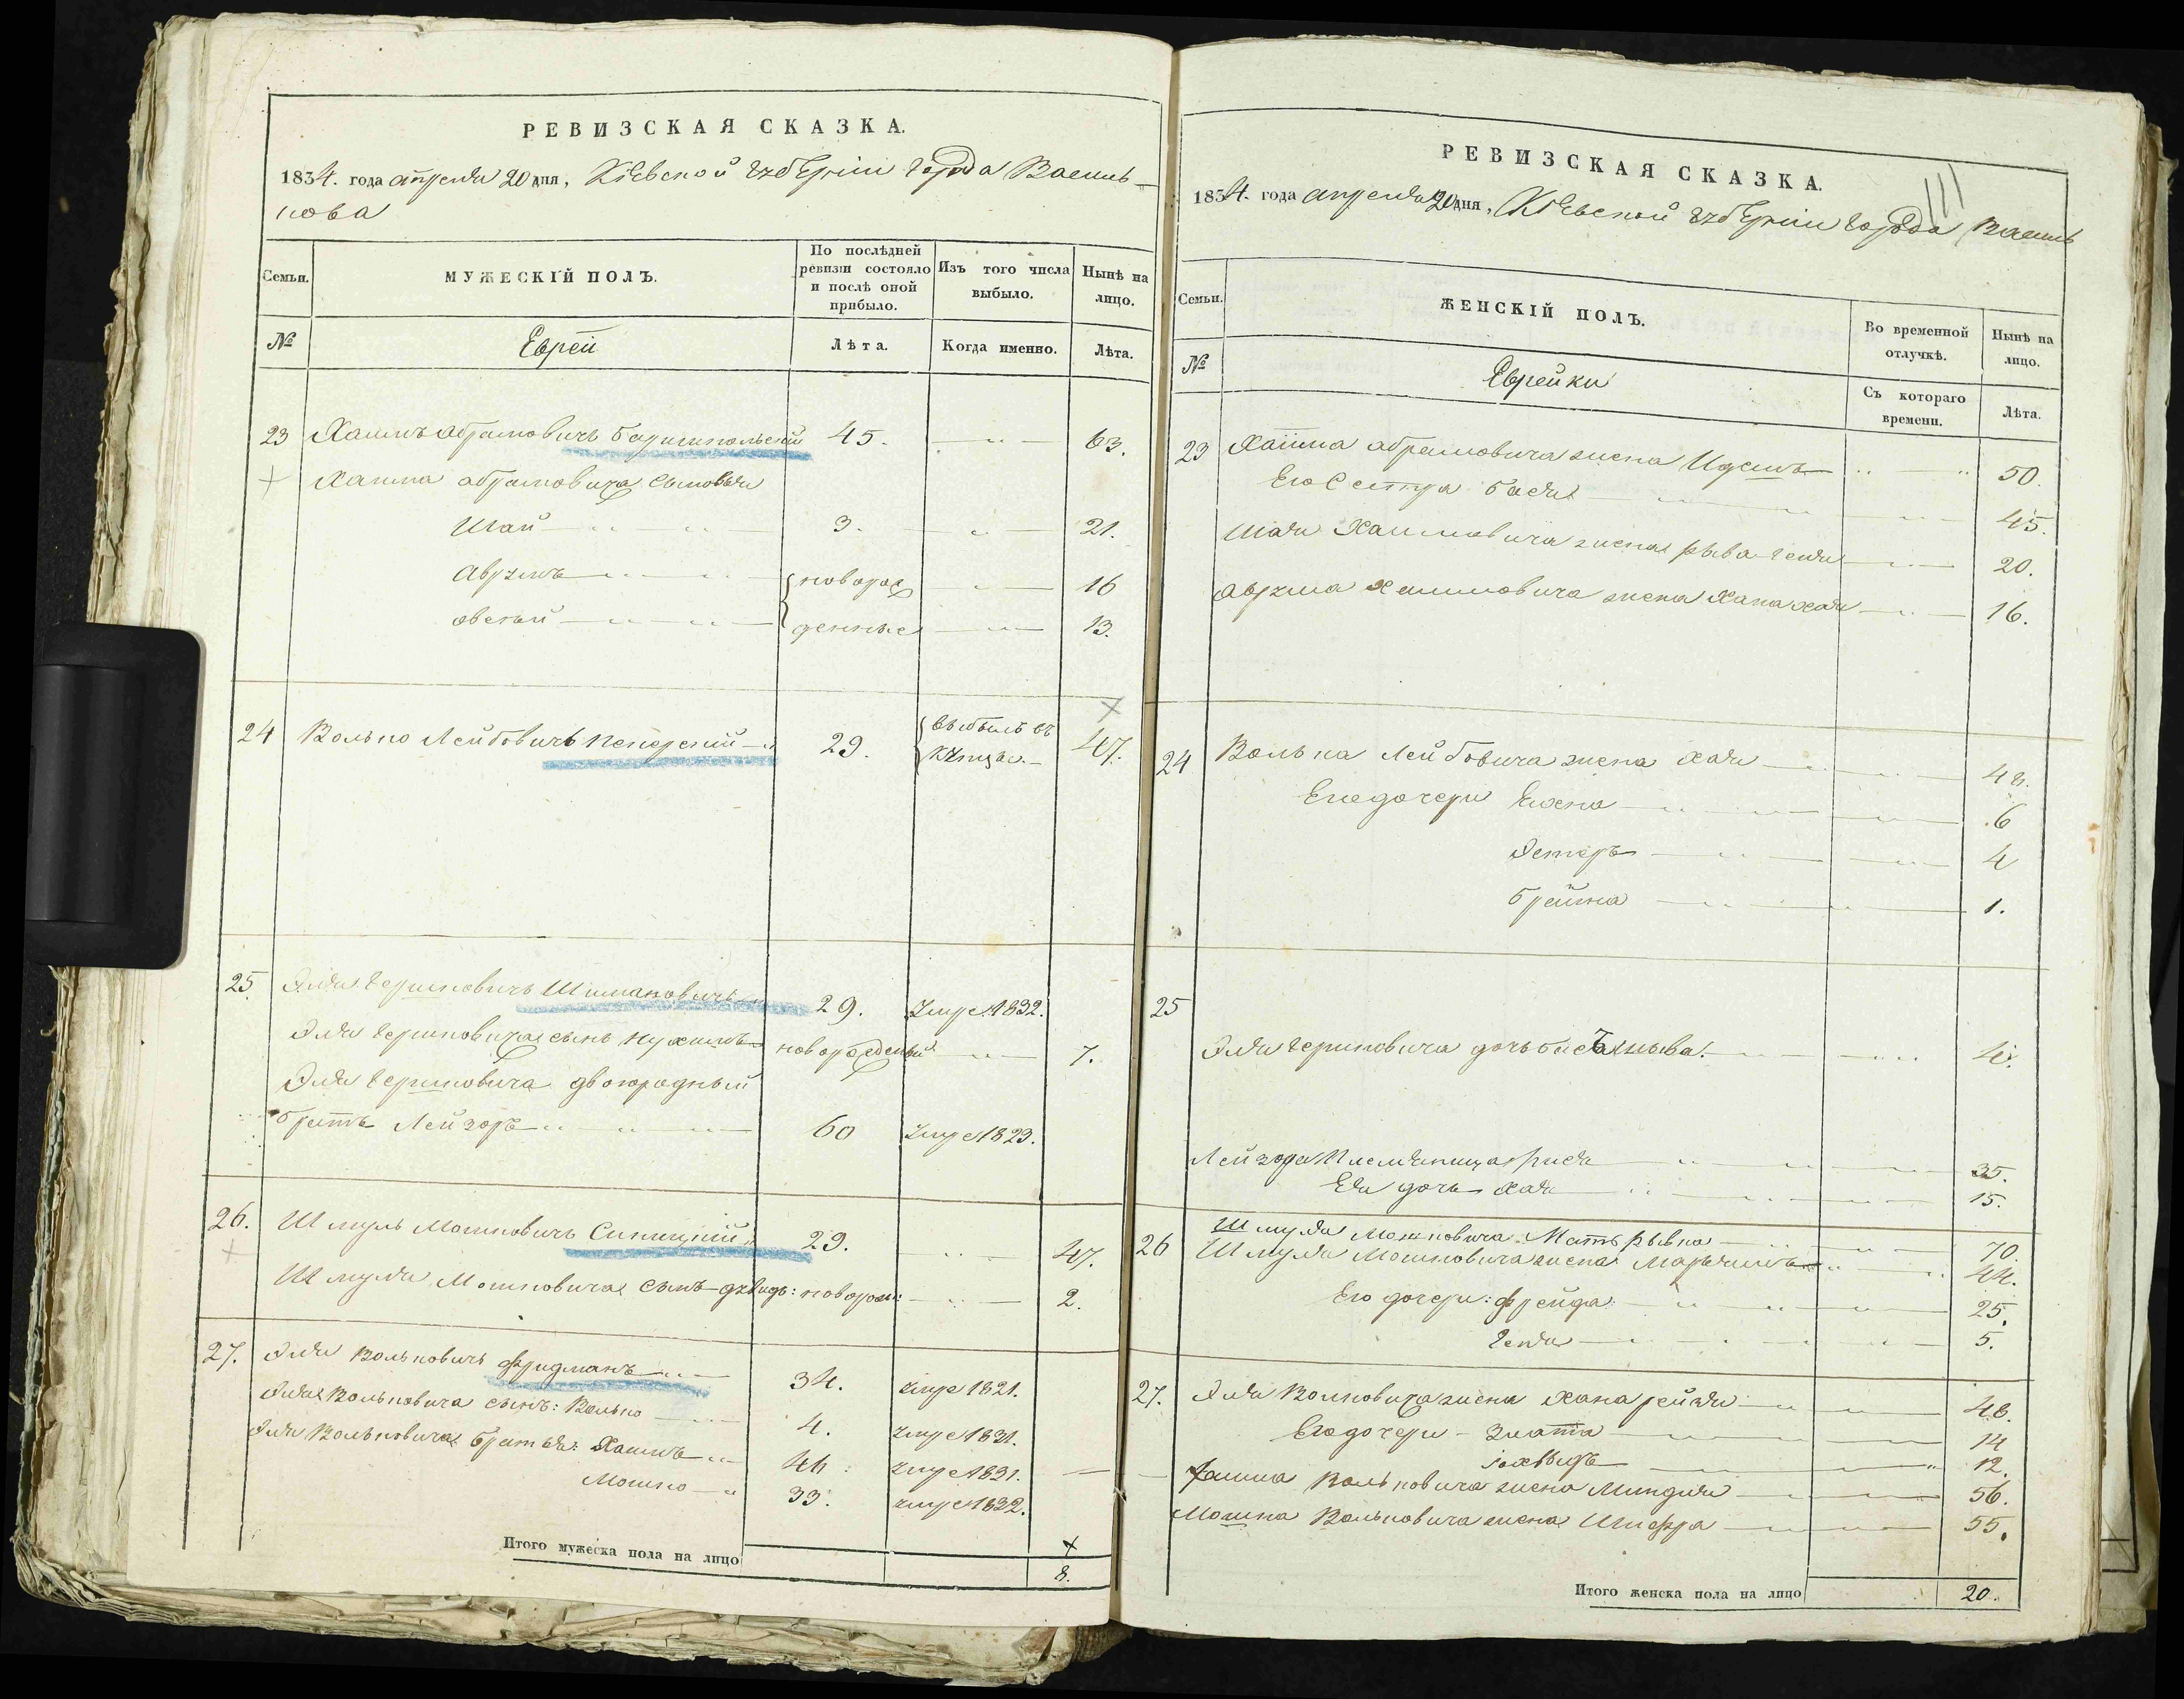 РЕВИЗСКАЯ СКАЗКА.
1834. года апреля 20 дня, Кіевской губерніи города Василь-
кова
Семьи.
МУЖЕСКІЙ ПОЛЪ.
По послѣдней ревизіи состояло и послѣ оной прибыло.
Изъ того числа выбыло.
Нынѣ на лицо.
№
Еврей
Лѣта.
Когда именно.
Лѣта.
23 Хаимъ Абрамовичъ Баришпольский 45. 63.
Хаима Абрамовича сыновья
Шая 3. 21.
Аврумъ новорож 16
Овсей денные 13.
24 Волько Лейбовичъ 29. выбылъ въ 47.
купцы
25. Эля Гершковичъ Шимановичъ 29. умре 1832.
Эля Гершковича сынъ Нухимъ новорожденый 7.
Эля Гершковича двоюродный
братъ Лейзоръ 60 умре 1823.
26. Шмуль Мошковичъ Синицкий 29. 47.
Шмуля Мошковича сынъ Дувидъ: новорож: 2.
27. Эля Вольковичъ Фридманъ 34. умре 1821.
Эля Вольковича сынъ: Волько 4. умре 1831.
Эля Вольковича братья: Хаимъ умре 1831.
Мошко 33. умре 1832.
Итого мужеска пола на лицо 8.
РЕВИЗСКАЯ СКАЗКА.
1834. года апреля 20 дня, Кіевской губерніи города Василь
Семьи.
ЖЕНСКІЙ ПОЛЪ.
Во временной отлучкѣ.
Нынѣ на лицо.
№
Еврейки
Съ котораго времени.
Лѣта.
23 Хаима Абрамовича жена 50.
Его Сестра Бася 45.
Шаи Хаимовича жена Рыва Геня 20.
Аврума Хаимовича жена Хана Хая 16.
24 Волька Лейбовича жена Хая
Его дочери 6
Эстеръ 4
Брейна 1.
25
Эля Гершковича дочь
Лейзора Племяница 35.
Ея дочь Хая 15.
26 Шмуля Мошковича Мать Рывка 70.
Шмуля Мошковича жена Марьямъ 44.
Его дочери: Фрейда 25.
Геня 5.
27. Эля Волковича жена Хана Рейзя 48.
Его дочери - Злата 14
12.
Хаима Вольковича жена Миндля 56.
Мошка Вольковича жена Шифра 55.
Итого женска пола на лицо 20.